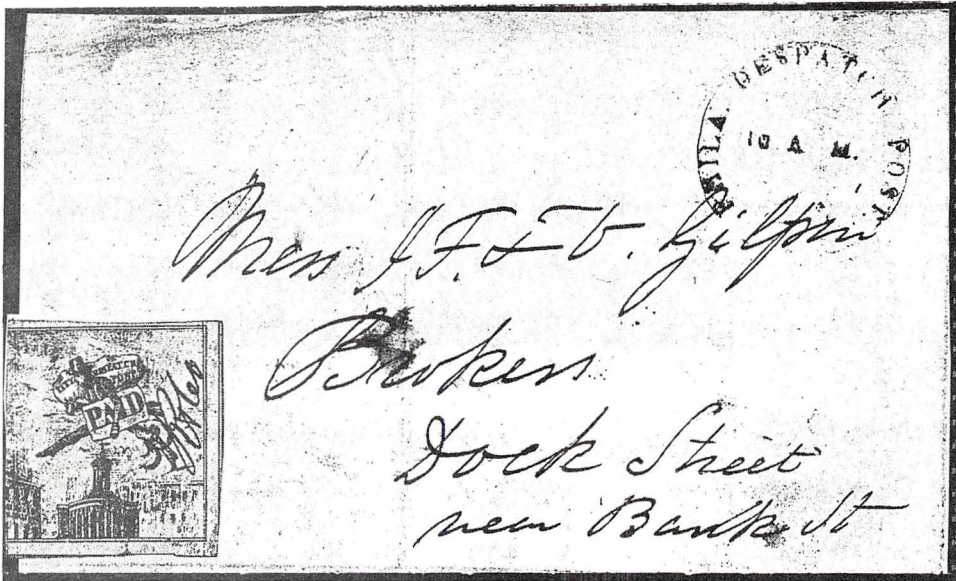 PHILA DESPATCH POST
10 A M.
Mess J F. & V. Gilpin
Brokers
Dock Street
near Bank St
PAID